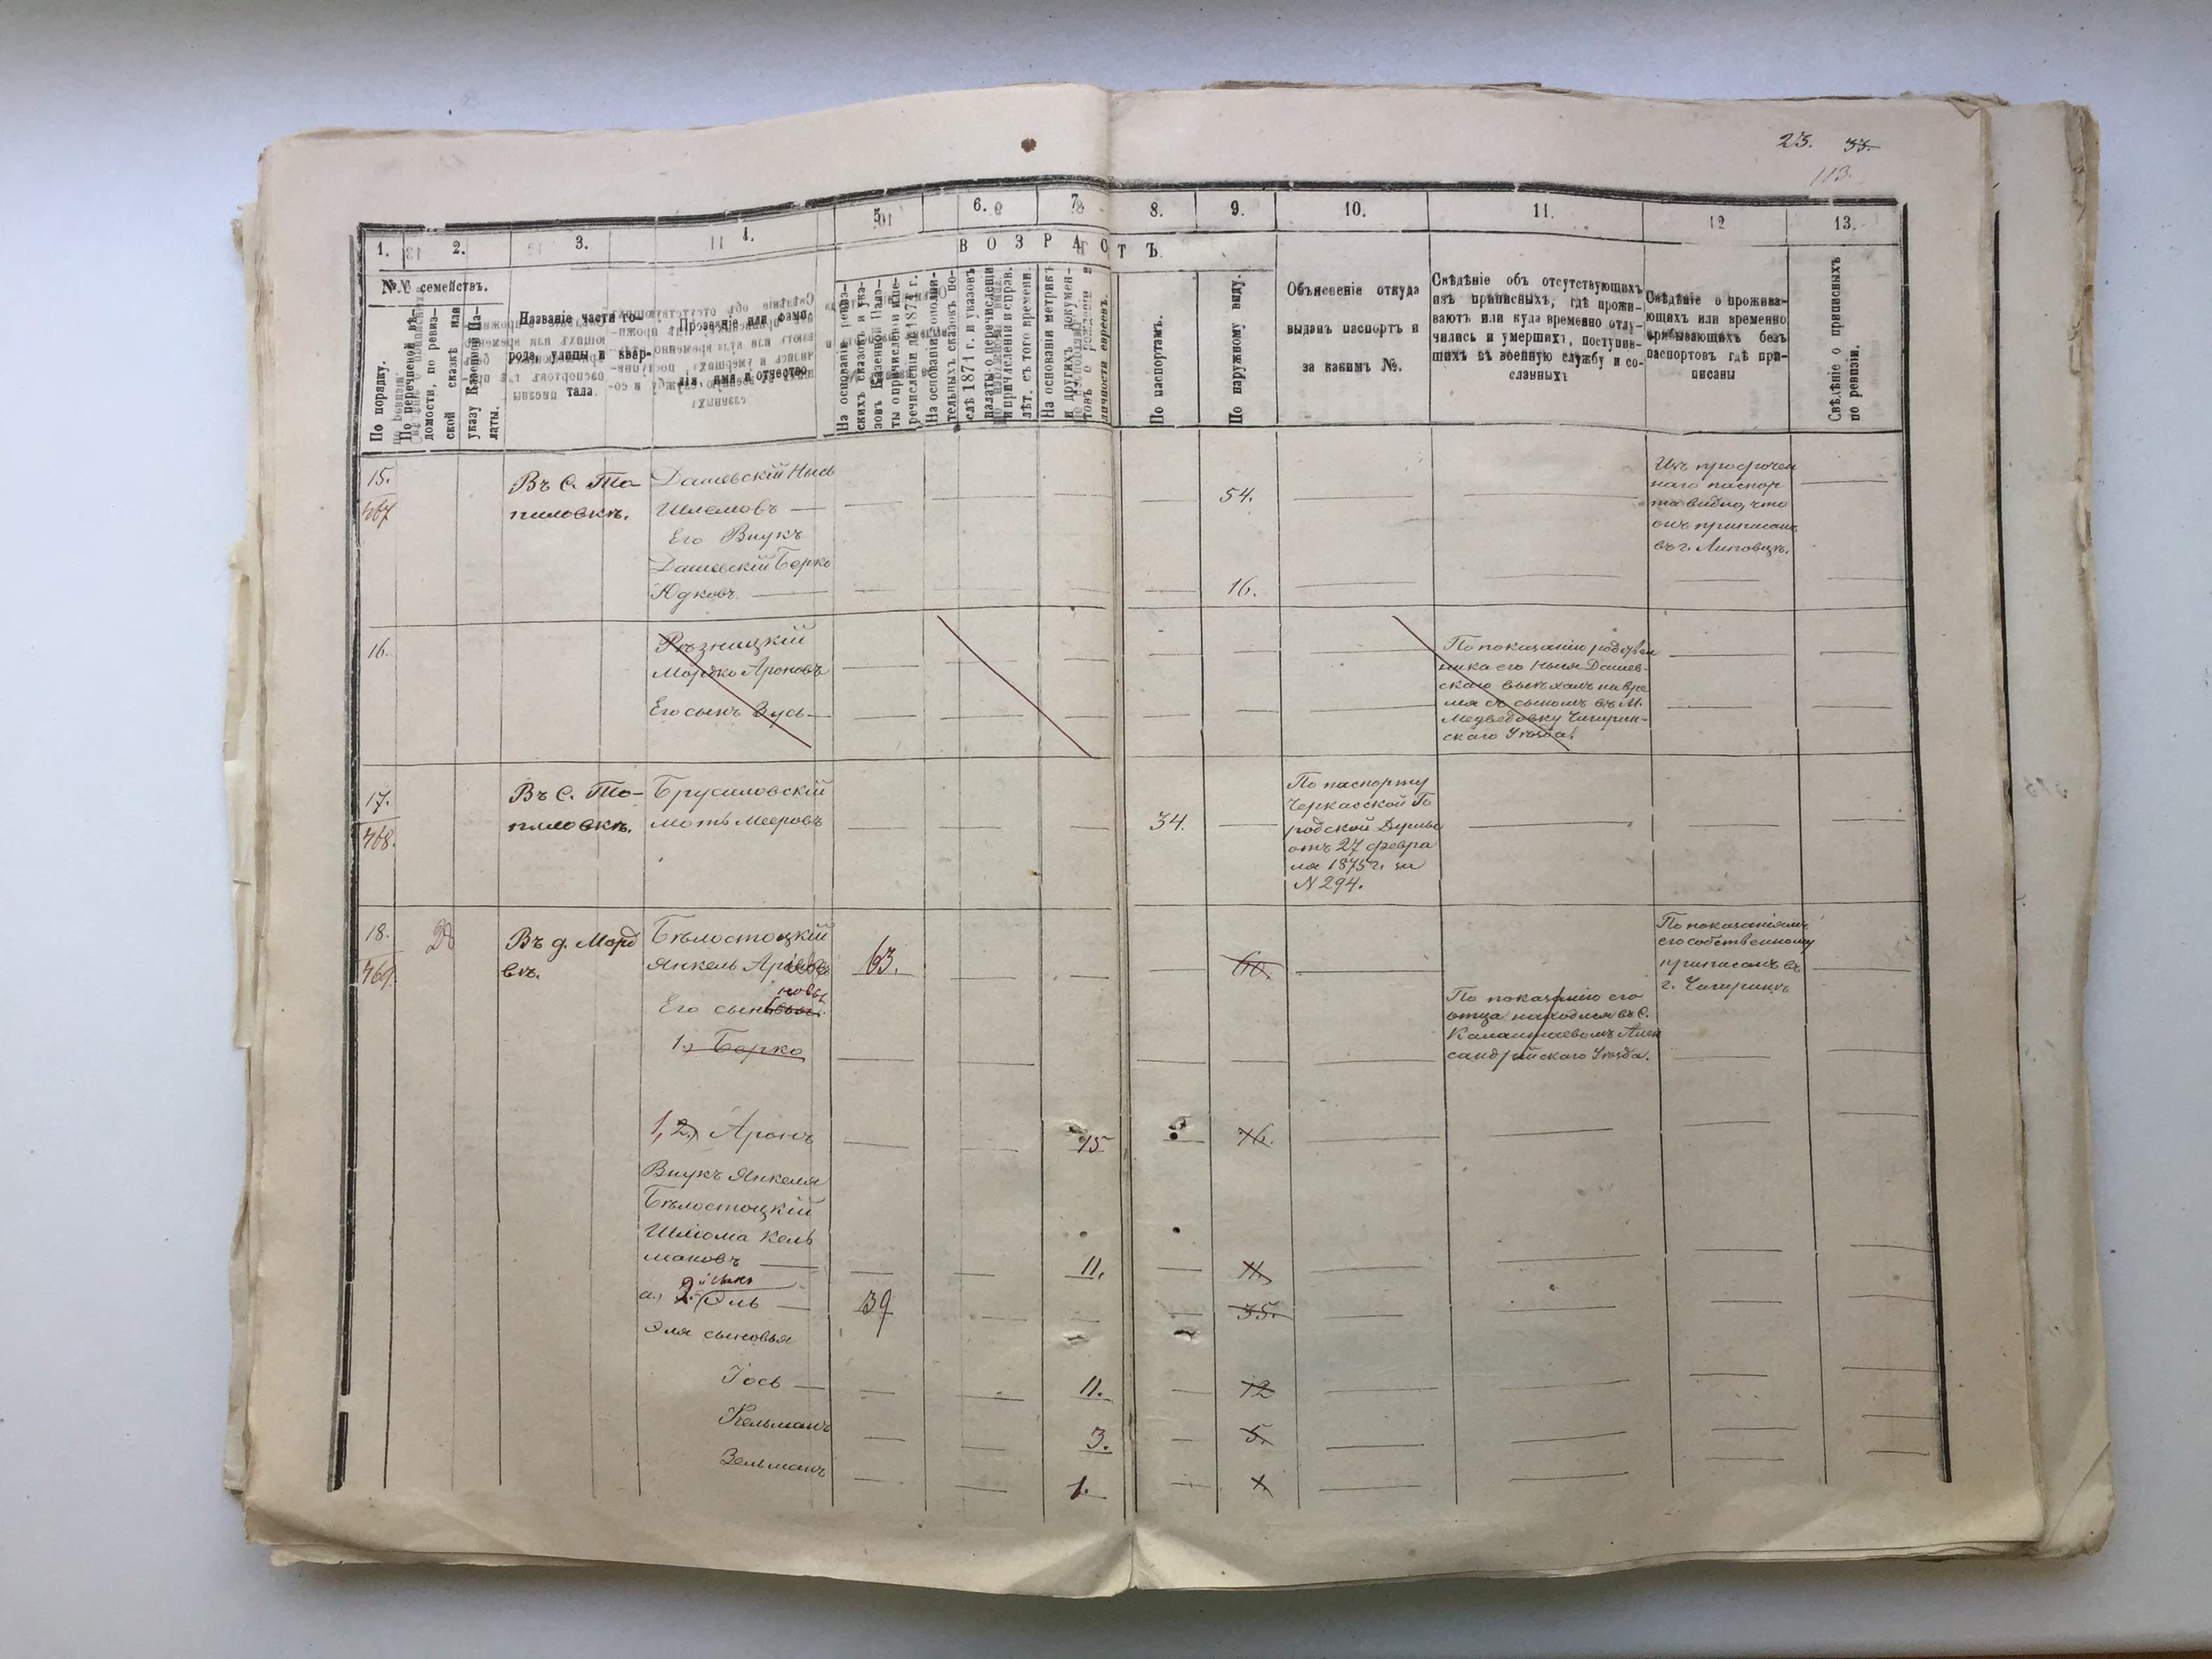 23. 33.
113.
1. 2. 3. 4. 5. 6. 7. 8. 9. 10. 11. 12 13.
ВОЗРАСТЪ.
№№ семействъ.
По порядку.
По перечневой вѣ-
домости, по ревиз-
ской сказкѣ или
указу Казенной Па-
латы.
Названіе части го-
рода, улицы и квар-
тала.
Прозваніе или фами-
лія, имя и отчество
На основаніи ревиз-
скихъ сказокъ и ука-
зовъ Казенной Пала-
ты о причисленіи и пе-
речисленіи до 1874 г.
На основаніи дополни-
тельныхъ сказокъ по-
слѣ 1874 г. и указовъ
палаты о перечисленіи
и причисленіи и справ.
лѣт. съ того времени.
На основаніи метрикъ
и другихъ докумен-
товъ о рожденіи и
личности евреевъ.
По паспортамъ.
По наружному виду.
Объясненіе откуда
выданъ паспортъ и
за какимъ №.
Свѣдѣніе объ отсутствующихъ
изъ приписныхъ, гдѣ прожи-
ваютъ или куда временно отлу-
чились и умершихъ, поступив-
шихъ въ военную службу и со-
сланныхъ
Свѣдѣніе о прожива-
ющихъ или временно
пребывающихъ безъ
паспортовъ гдѣ при-
писаны
Свѣдѣніе о приписныхъ
по ревизіи.
15.
467
Въ С. То-
пиловкѣ.
Дашевскій Нысь
Шлемовъ —
Его Внукъ
Дашевскій Берко
Юдковъ —
54.
16.
Изъ просрочен
наго паспор
та видно, что
онъ приписанъ
въ г. Липовцѣ.
16.
Рѣзницкій
Мордко Ароновъ
Его сынъ Зусь —
По показанію родствен
ника его Ныся Дашев-
скаго выѣхалъ на вре
мя съ сыномъ въ М.
Медведовку Чигирин-
скаго Уѣзда.
17.
468.
Въ С. То-
пиловкѣ.
Брусиловскій
Моть Мееровъ
34.
По паспорту
Черкасской Го
родской Думы
отъ 27 февра
ля 1875 г. за
N 294.
18.
469.
28
Въ д. Морд
вѣ.
Бѣлостоцкій
Янкель
63.
60.
По показаніямъ
его собственному
приписанъ въ
г. Чигиринѣ
Его сыновья
1.) Берко
По показанію его
отца находился въ С.
Калантаевомъ Алек
сандрійскаго Уѣзда.
1, 2.) Аронъ
15
16.
Внукъ Янкеля
Бѣлостоцкій
Шлиома Кель
мановъ —
11.
11.
а.) 2. й сынъ Эль —
39
35.
Эля сыновья
Іось —
11.
12
Кельманъ
3.
5.
Зельманъ
1.